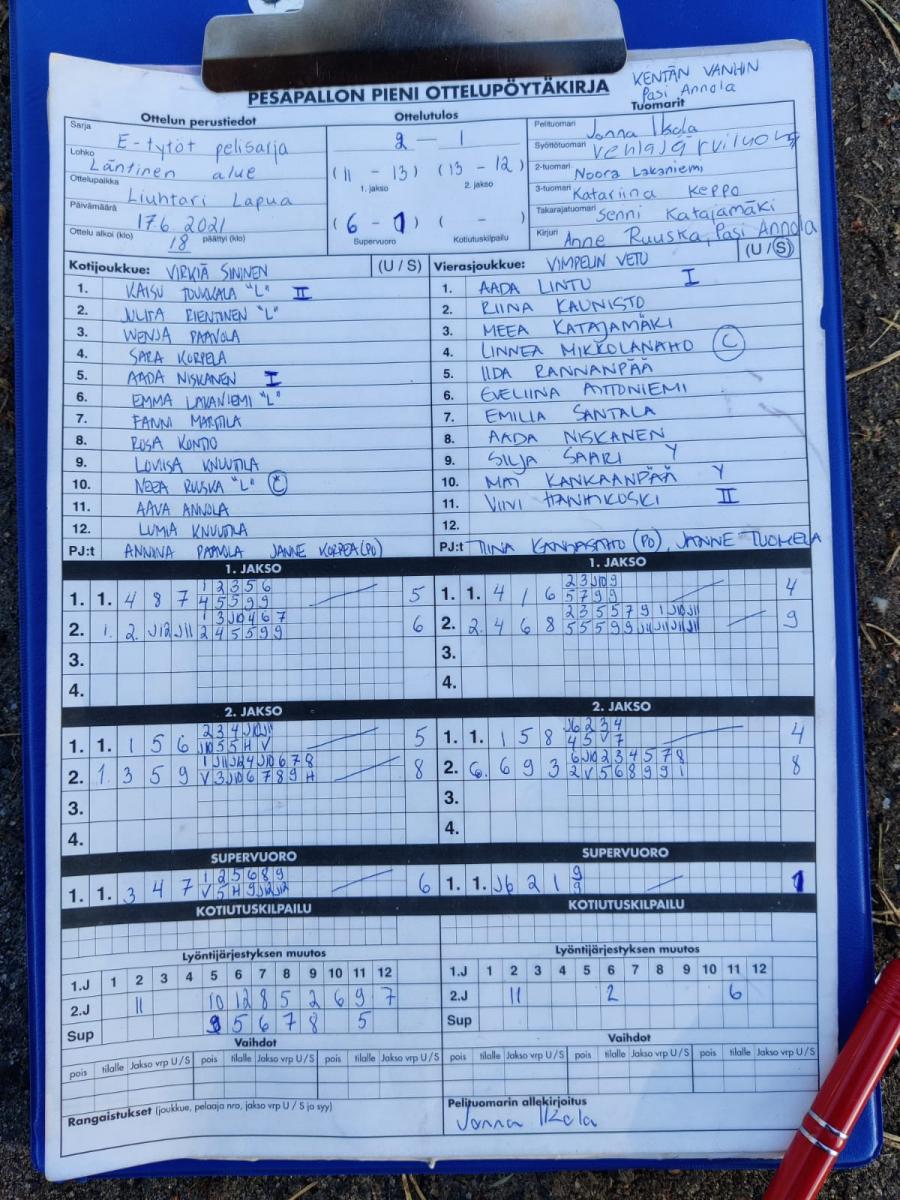 PESÄPALLON PIENI OTTELUPÖYTÄKIRJA
KENTÄN VANHIN
Pasi Annola
Ottelun perustiedot
Sarja E-tytöt pelisarja
Lohko Läntinen alue
Ottelupaikka Liuhtari Lapua
Päivämäärä 17.6.2021
Ottelu alkoi (klo) 18 päättyi (klo)
Ottelutulos
2 - 1
(11 - 13) (13 - 12)
1. jakso 2. jakso
(6 - 1) ( - )
Supervuoro Kotiutuskilpailu
Tuomarit
Pelituomari Janna Ikola
Syöttötuomari
2-tuomari Noora Lakaniemi
3-tuomari Katariina Keppo
Takarajatuomari Senni Katajamäki
Kirjuri Anne Ruuska, Pasi Annola
Kotijoukkue: VIRKIÄ SININEN (U / S)
1. KAISU TOUKKALA "L" II
2. JULIA RIENTINEN "L"
3. WENJA PAAVOLA
4. SARA KORPELA
5. AADA NISKANEN I
6. EMMA LAKANIEMI "L"
7. FANNI MARTTILA
8. ROSA KONTIO
9. LOVIISA KNUUTILA
10. NEEA RUUSKA "L" C
11. AAVA ANNOLA
12. LUMIA KNUUTILA
PJ:t ANNINA PAAVOLA JANNE KORPELA (PO)
Vierasjoukkue: VIMPELIN VETO (U / S)
1. AADA LINTU I
2. RIINA KAUNISTO
3. MEEA KATAJAMÄKI
4. LINNEA MIKKOLANAHO C
5. IIDA RANNANPÄÄ
6. EVELIINA
7. EMILIA SANTALA
8. AADA NISKANEN
9. SILJA SAARI Y
10. KANKAANPÄÄ Y
11. VIIVI HANHIKOSKI II
12.
PJ:t TIINA KANGASAHO (PO), JANNE TUOMELA
1. JAKSO
1. 1. 4 8 7 5
1 2 3 5 6
4 5 5 9 9
2. 1. 2. J12 J11 6
1 3 J10 4 6 7
2 4 5 5 9 9
3.
4.
1. JAKSO
1. 1. 4 1 6 4
2 3 J10 9
5 7 9 9
2. 2. 4 6 8 9
2 3 5 5 7 9 1 J10 J11
5 5 5 9 9 J11 J11 J11 J11
3.
4.
2. JAKSO
1. 1. 1 5 6 5
2 3 4 J10 J11
J10 5 5 H V
2. 1. 3 5 9 8
V 3 J10 6 7 8 9 H
3.
4.
2. JAKSO
1. 1. 1 5 8 4
J6 2 3 4
4 5 V 7
2. 6. 6 9 3 8
6 J10 2 3 4 5 7 8
2 V 5 6 8 9 9 1
3.
4.
SUPERVUORO
1. 1. 3 4 7 6
1 2 5 6 8 9
V 5 H 9 J12 J12
SUPERVUORO
1. 1. J6 2 1 1
9
9
KOTIUTUSKILPAILU
KOTIUTUSKILPAILU
Lyöntijärjestyksen muutos
1.J 1 2 3 4 5 6 7 8 9 10 11 12
2.J 11 10 12 8 5 2 6 9 7
Sup 9 5 6 7 8 5
Lyöntijärjestyksen muutos
1.J 1 2 3 4 5 6 7 8 9 10 11 12
2.J 11 2 6
Sup
Vaihdot
pois tilalle Jakso vrp U / S pois tilalle Jakso vrp U / S pois tilalle Jakso vrp U / S
Vaihdot
pois tilalle Jakso vrp U / S pois tilalle Jakso vrp U / S pois tilalle Jakso vrp U / S
Rangaistukset (joukkue, pelaaja nro, jakso vrp U / S ja syy)
Pelituomarin allekirjoitus
Janna Ikola